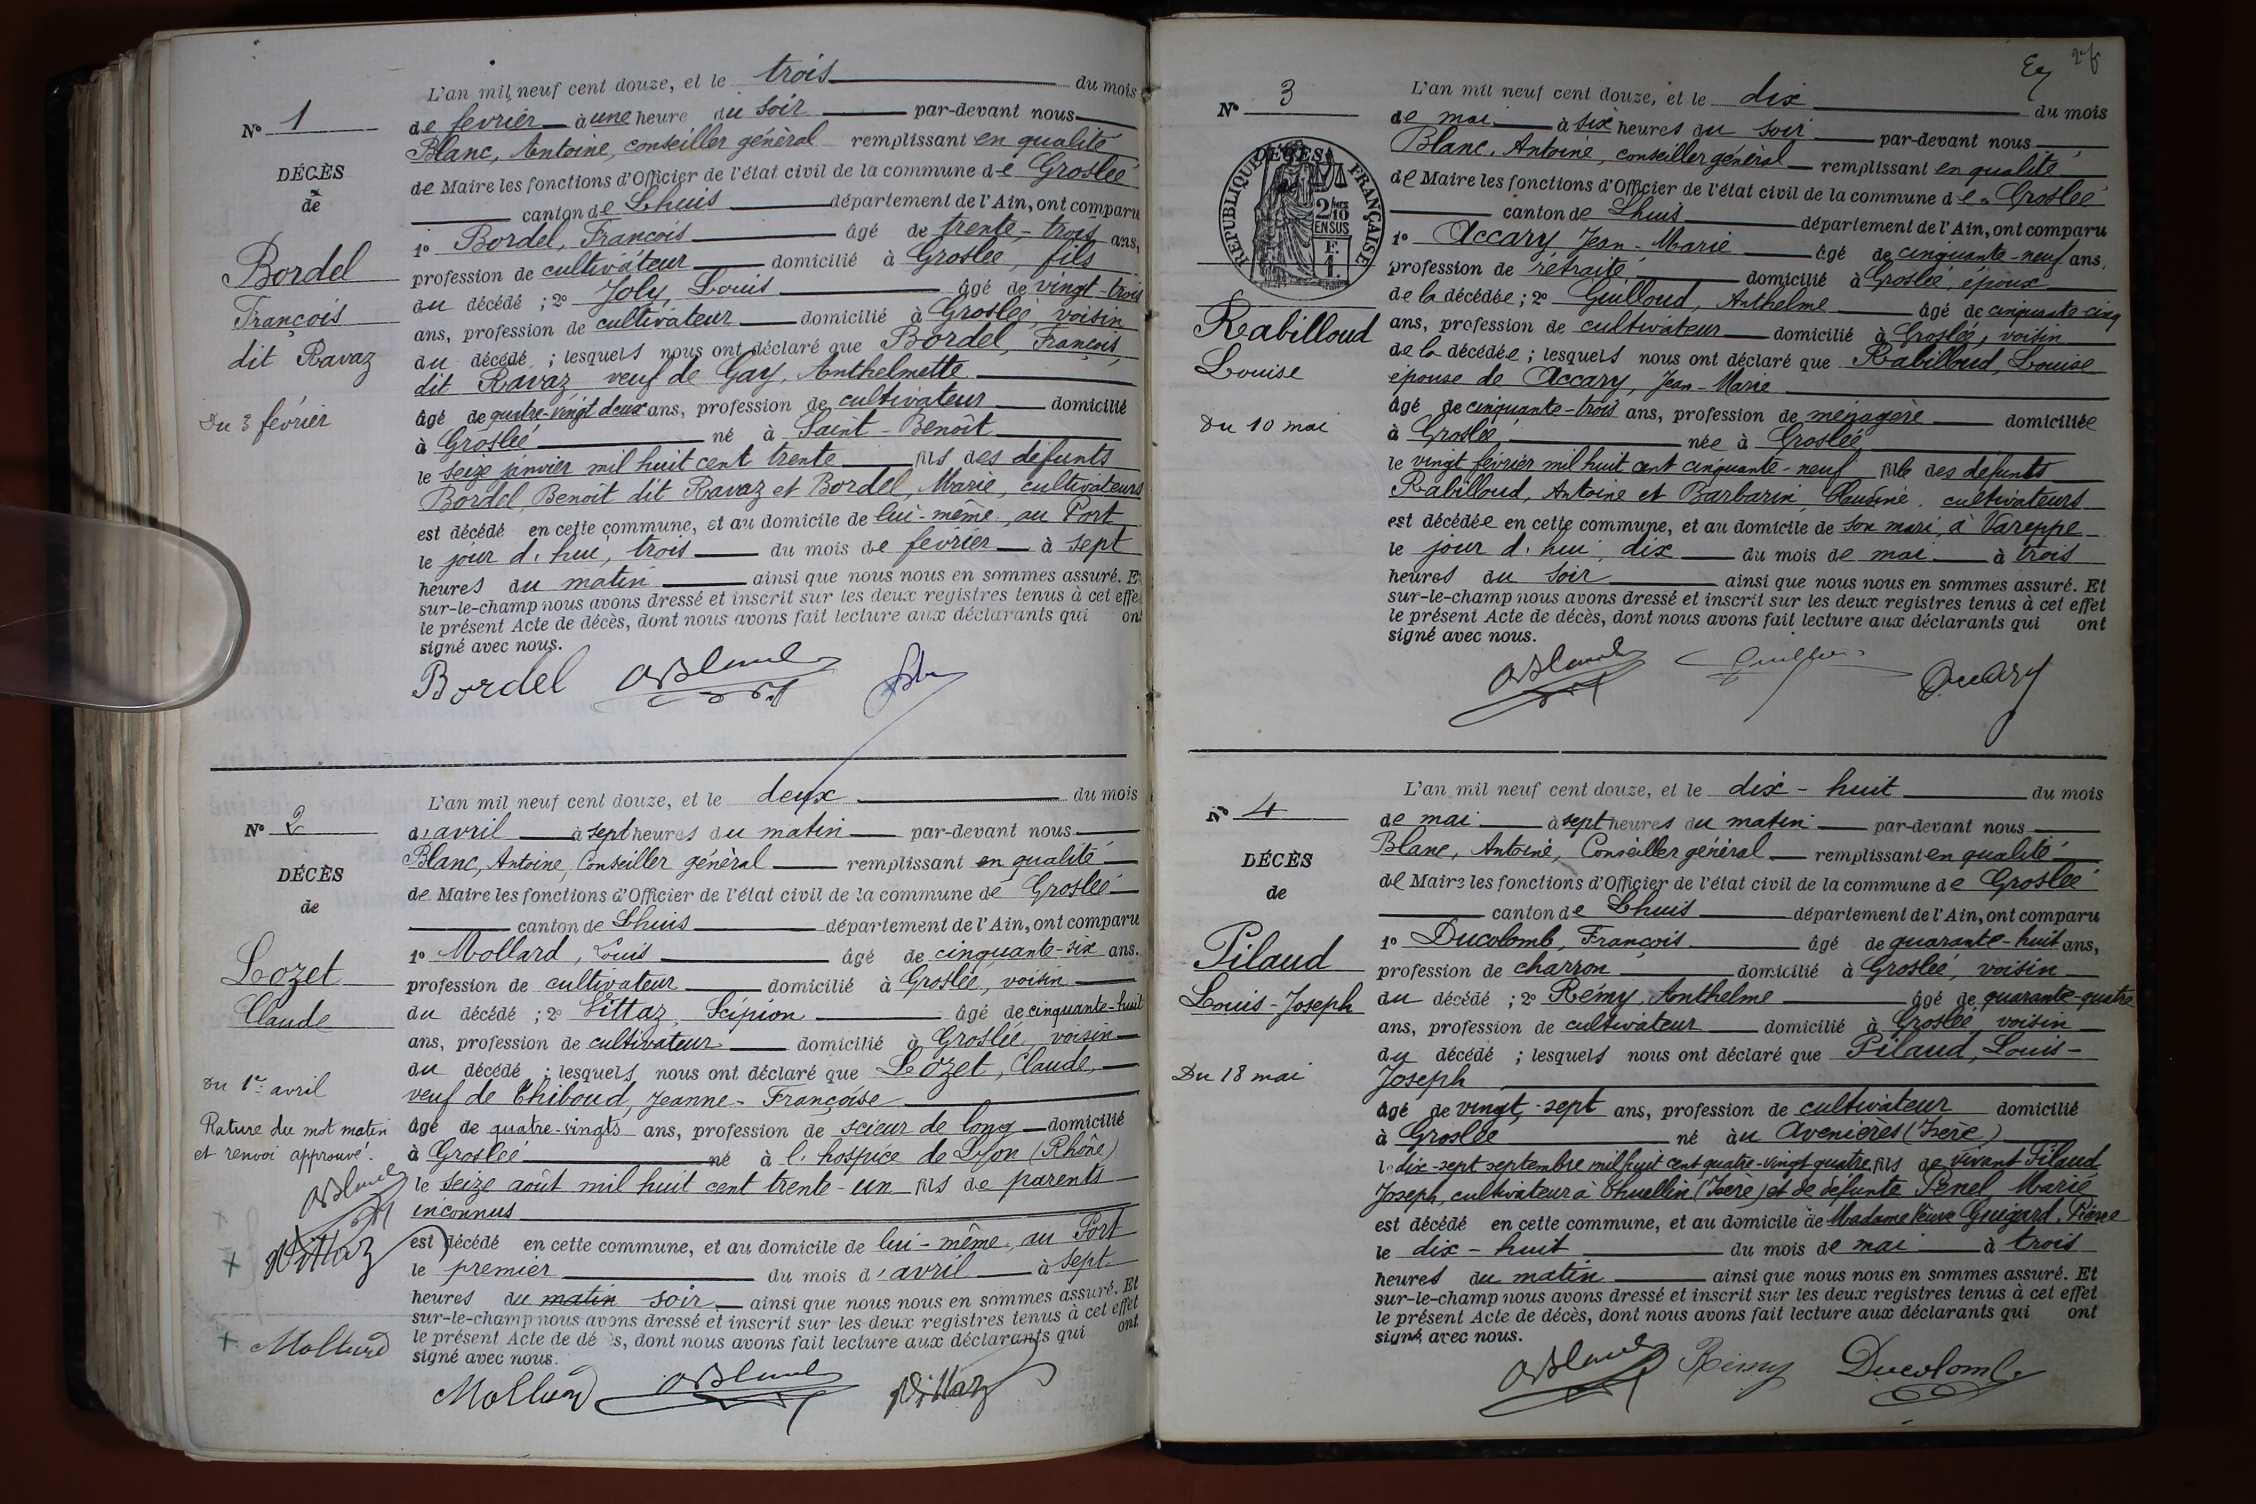 N° 1
DÉCÈS
de
Bordel
François
dit Ravaz
Du 3 février
L'an mil neuf cent douze, et le trois du mois
de février à une heure du soir par-devant nous
Blanc, Antoine, conseiller général remplissant en qualité
de Maire les fonctions d'Officier de l'état civil de la commune de Groslée
canton de Lhuis département de l'Ain, ont comparu
1° Bordel, François âgé de trente-trois ans,
profession de cultivateur domicilié à Groslée, fils
du décédé ; 2° Joly, Louis âgé de vingt-trois
ans, profession de cultivateur domicilié à Groslée, voisin
du décédé ; lesquels nous ont déclaré que Bordel, François,
dit Ravaz veuf de Gay, Anthelmette
âgé de quatre-vingt deux ans, profession de cultivateur domicilié
à Groslée né à Saint-Benoît
le seize janvier mil huit cent trente fils des défunts
Bordel, Benoît dit Ravaz et Bordel, Marie, cultivateurs
est décédé en cette commune, et au domicile de lui-même, au Port
le jour d'hui, trois du mois de février à sept
heures du matin ainsi que nous nous en sommes assuré. Et
sur-le-champ nous avons dressé et inscrit sur les deux registres tenus à cet effet
le présent Acte de décès, dont nous avons fait lecture aux déclarants qui ont
signé avec nous.
Bordel ABlanc
N° 2
DÉCÈS
de
Lozet
Claude
Du 1er avril
Rature du mot matin
et renvoi approuvé.
ABlanc
Vittaz
Mollard
L'an mil neuf cent douze, et le deux du mois
d'avril à sept heures du matin par-devant nous
Blanc, Antoine, Conseiller général remplissant en qualité
de Maire les fonctions d'Officier de l'état civil de la commune de Groslée
canton de Lhuis département de l'Ain, ont comparu
1° Mollard, Louis âgé de cinquante-six ans.
profession de cultivateur domicilié à Groslée, voisin
du décédé ; 2° Vittaz, Scipion âgé de cinquante-huit
ans, profession de cultivateur domicilié à Groslée, voisin
du décédé ; lesquels nous ont déclaré que Lozet, Claude,
veuf de Thiboud, Jeanne-Françoise
âgé de quatre-vingts ans, profession de scieur de long domicilié
à Groslée né à l'hospice de Lyon (Rhône)
le seize août mil huit cent trente-un fils de parents
inconnus
est décédé en cette commune, et au domicile de lui-même, au Port
le premier du mois d'avril à sept
heures du matin soir ainsi que nous nous en sommes assuré. Et
sur-le-champ nous avons dressé et inscrit sur les deux registres tenus à cet effet
le présent Acte de dé s, dont nous avons fait lecture aux déclarants qui ont
signé avec nous.
Mollard ABlanc Vittaz
N° 3
RÉPUBLIQUE FRANÇAISE
DÉCÈS
2/10
EN SUS
F.
1.
Rabilloud
Louise
Du 10 mai
L'an mil neuf cent douze, et le dix du mois
de mai à six heures du soir par-devant nous
Blanc, Antoine, conseiller général remplissant en qualité
de Maire les fonctions d'Officier de l'état civil de la commune de Groslée
canton de Lhuis département de l'Ain, ont comparu
1° Accary Jean-Marie âgé de cinquante-neuf ans,
profession de retraité domicilié à Groslée, époux
de la décédée ; 2° Guilloud, Anthelme âgé de cinquante-cinq
ans, profession de cultivateur domicilié à Groslée, voisin
de la décédée ; lesquels nous ont déclaré que Rabilloud, Louise
épouse de Accary, Jean-Marie
âgé de cinquante-trois ans, profession de ménagère domiciliée
à Groslée née à Groslée
le vingt février mil huit cent cinquante-neuf fille des défunts
Rabilloud, Antoine et Barbarin, Claudine, cultivateurs
est décédée en cette commune, et au domicile de son mari, à Vareppe
le jour d'hui, dix du mois de mai à trois
heures du soir ainsi que nous nous en sommes assuré. Et
sur-le-champ nous avons dressé et inscrit sur les deux registres tenus à cet effet
le présent Acte de décès, dont nous avons fait lecture aux déclarants qui ont
signé avec nous.
ABlanc Guilloud Accary
N° 4
DÉCÈS
de
Pilaud
Louis-Joseph
Du 18 mai
L'an mil neuf cent douze, et le dix-huit du mois
de mai à sept heures du matin par-devant nous
Blanc, Antoine, Conseiller général remplissant en qualité
de Maire les fonctions d'Officier de l'état civil de la commune de Groslée
canton de Lhuis département de l'Ain, ont comparu
1° Ducolomb, François âgé de quarante-huit ans,
profession de charron domicilié à Groslée, voisin
du décédé ; 2° Rémy, Anthelme âgé de quarante-quatre
ans, profession de cultivateur domicilié à Groslée, voisin
du décédé ; lesquels nous ont déclaré que Pilaud, Louis-
Joseph
âgé de vingt-sept ans, profession de cultivateur domicilié
à Groslée né au Avenières (Isère)
le dix-sept septembre mil huit cent quatre-vingt quatre fils de vivant Pilaud
Joseph, cultivateur à Thuellin (Isère) et de défunte Penel, Marie
est décédé en cette commune, et au domicile de Madame Veuve Guigard,
le dix-huit du mois de mai à trois
heures du matin ainsi que nous nous en sommes assuré. Et
sur-le-champ nous avons dressé et inscrit sur les deux registres tenus à cet effet
le présent Acte de décès, dont nous avons fait lecture aux déclarants qui ont
signé avec nous.
ABlanc Rémy Ducolomb